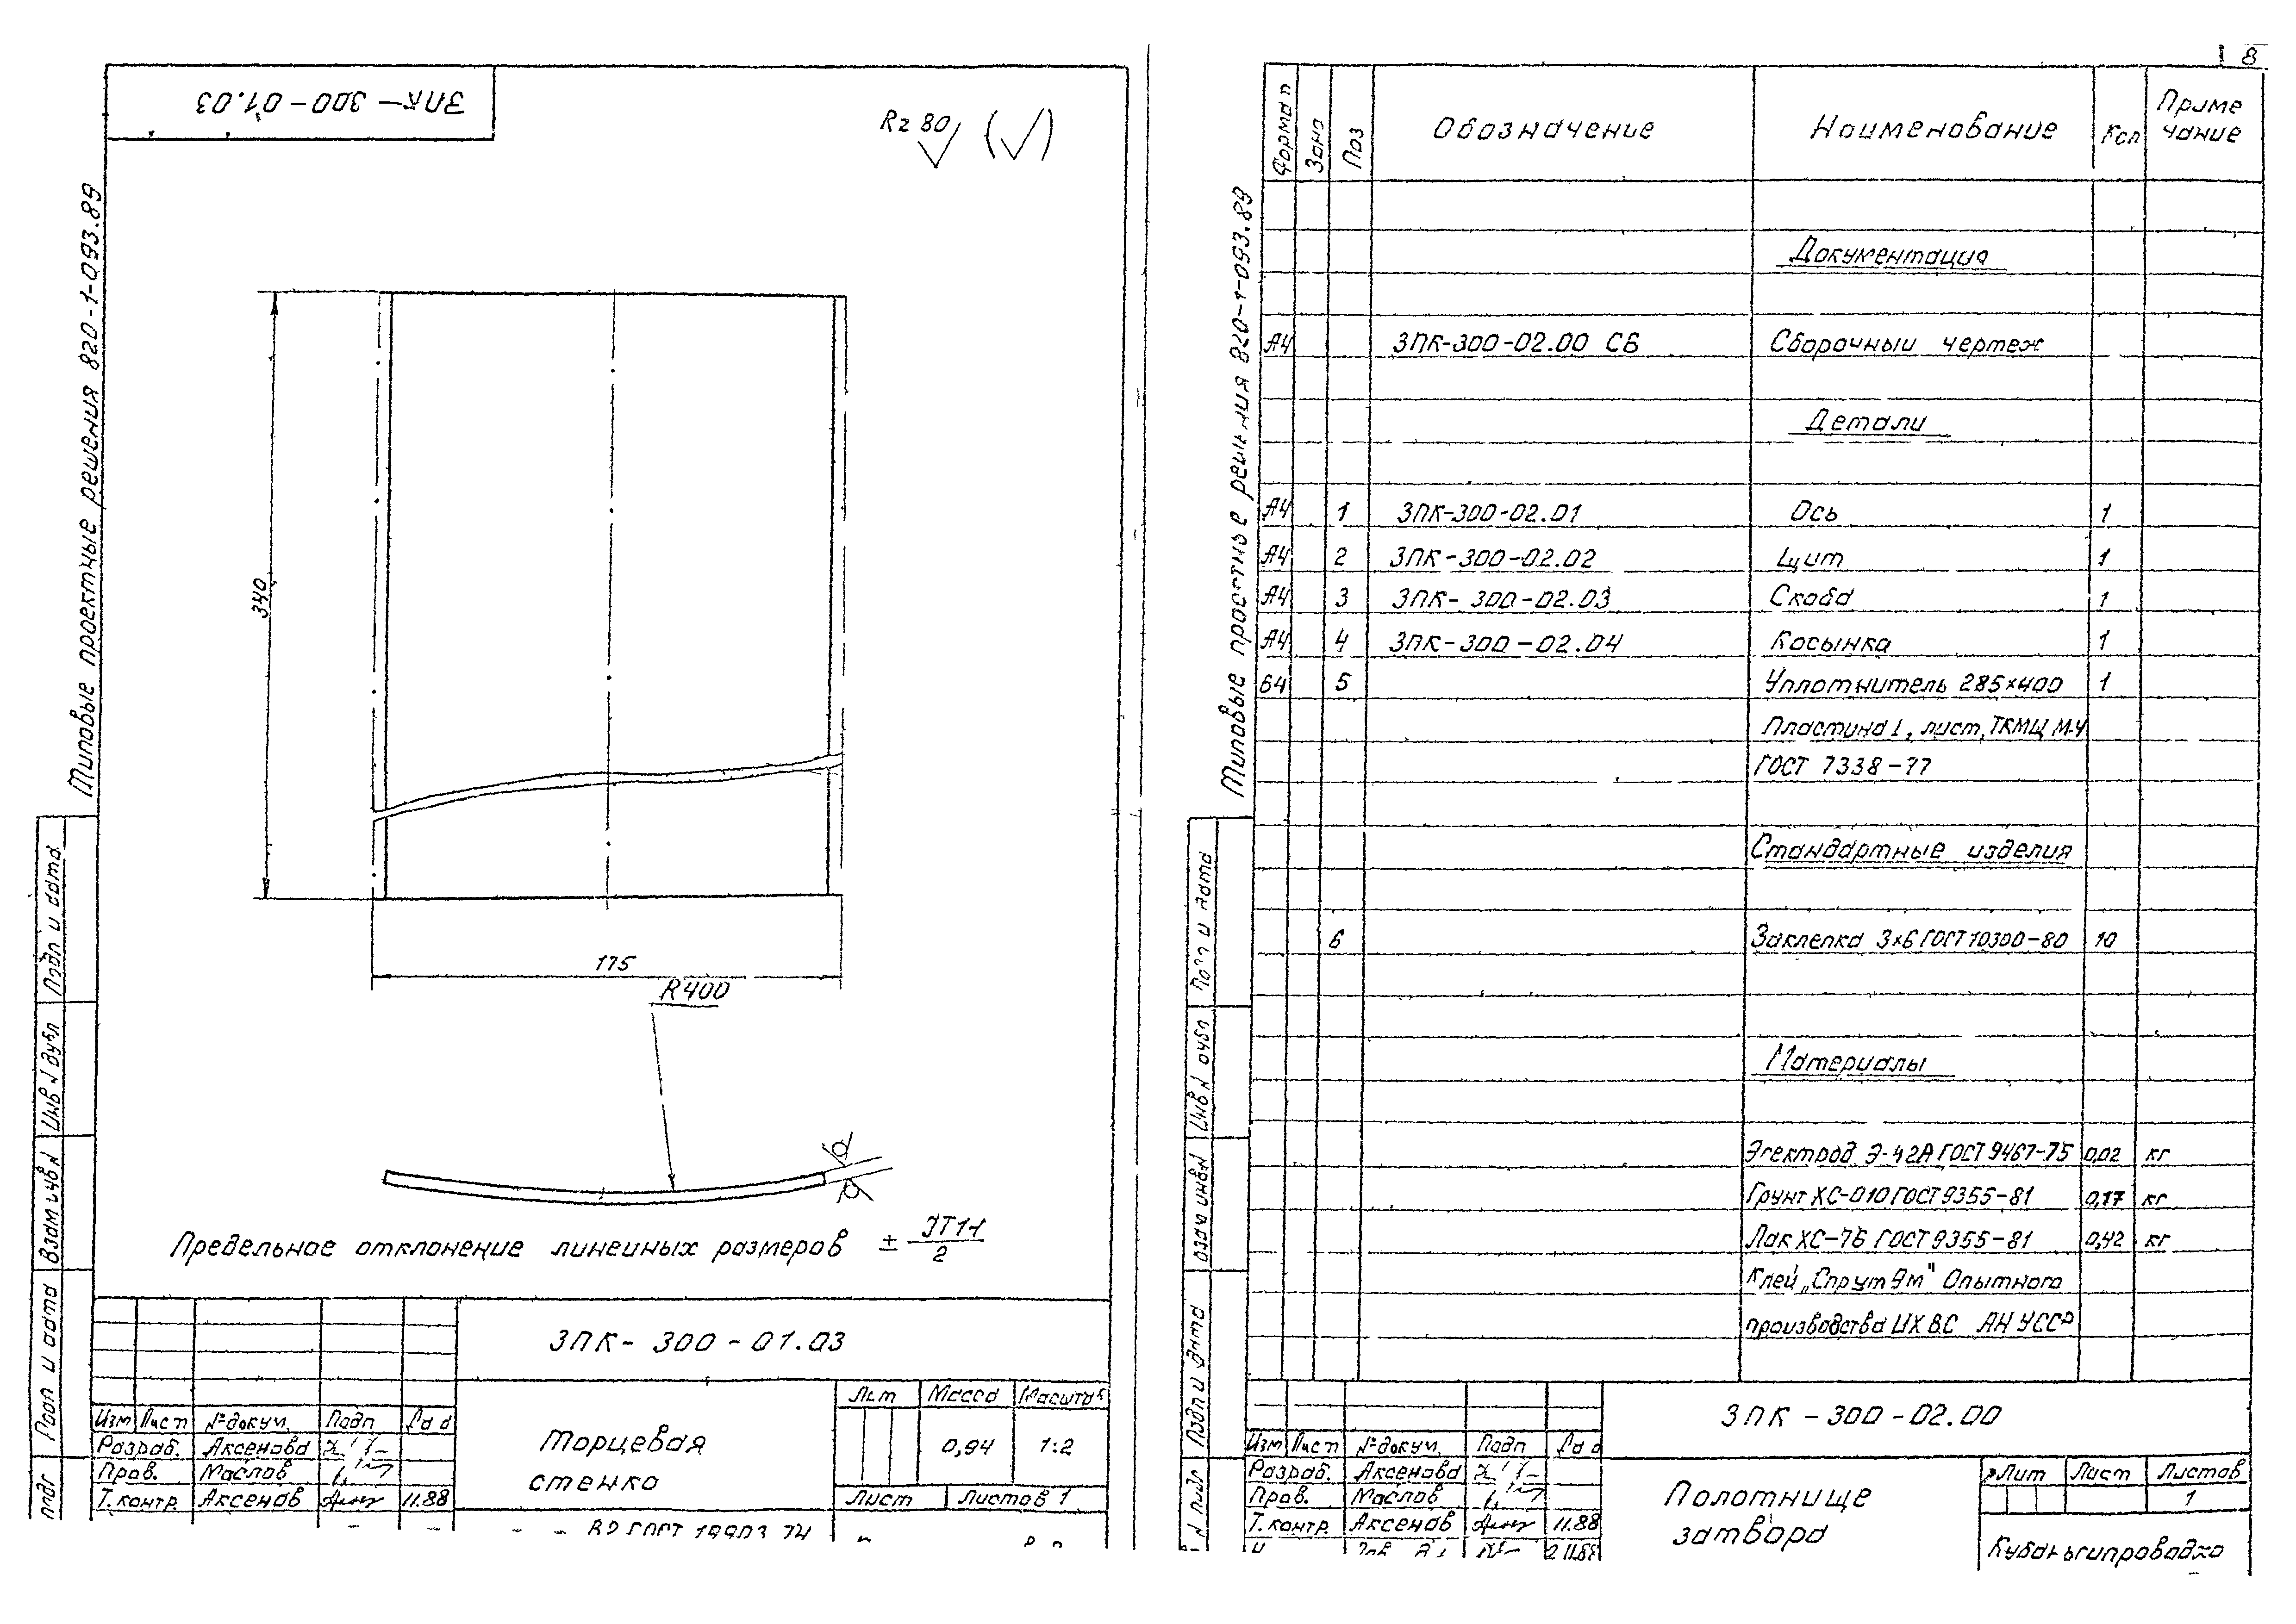 ЗПК-300-01.03
Rz 80
Типовые проектные решения 820-1-093.89
340
175
R400
Предельное отклонение линейных размеров ±
2
Подп и дата
Инв N дубл
Взам инв N
и дата
ЗПК-300-01.03
Торцевая
стенка
Лит Масса Масштаб
0,94 1:2
Лист Листов 1
Изм Лист № докум. Подп
Разраб. Аксенова
Пров. Маслов
Т. контр. Аксенов 11.88
ГОСТ 74
8
Формат Зона Поз Обозначение Наименование Кол Приме
чание
Документация
А4 ЗПК-300-02.00 СБ Сборочный чертеж
Детали
А4 1 ЗПК-300-02.01 Ось 1
А4 2 ЗПК-300-02.02 Щит 1
А4 3 ЗПК-300-02.03 Скоба 1
А4 4 ЗПК-300-02.04 Косынка 1
Б4 5 Уплотнитель 285×400 1
Пластина 1, лист, ТКМЩ М-4
ГОСТ 7338-77
Стандартные изделия
6 Заклепка 3×6 ГОСТ 10300-80 10
Материалы
Электрод Э-42А ГОСТ 9467-75 0,02 кг
Грунт ХС-010 ГОСТ 9355-81 0,17 кг
Лак ХС-76 ГОСТ 9355-81 0,42 кг
Клей „Спрут 9м" Опытного
производства ИХВС АН УССР
Типовые решения 820-1-093.89
и дата
Инв N
инв N
Подп и дата
N подл
ЗПК-300-02.00
Полотнище
затвора
Лит Лист Листов
1
Кубаньгипроводхоз
Изм Лист № докум. Подп
Разраб. Аксенова
Пров. Маслов
Т. контр. Аксенов 11.88
11.88